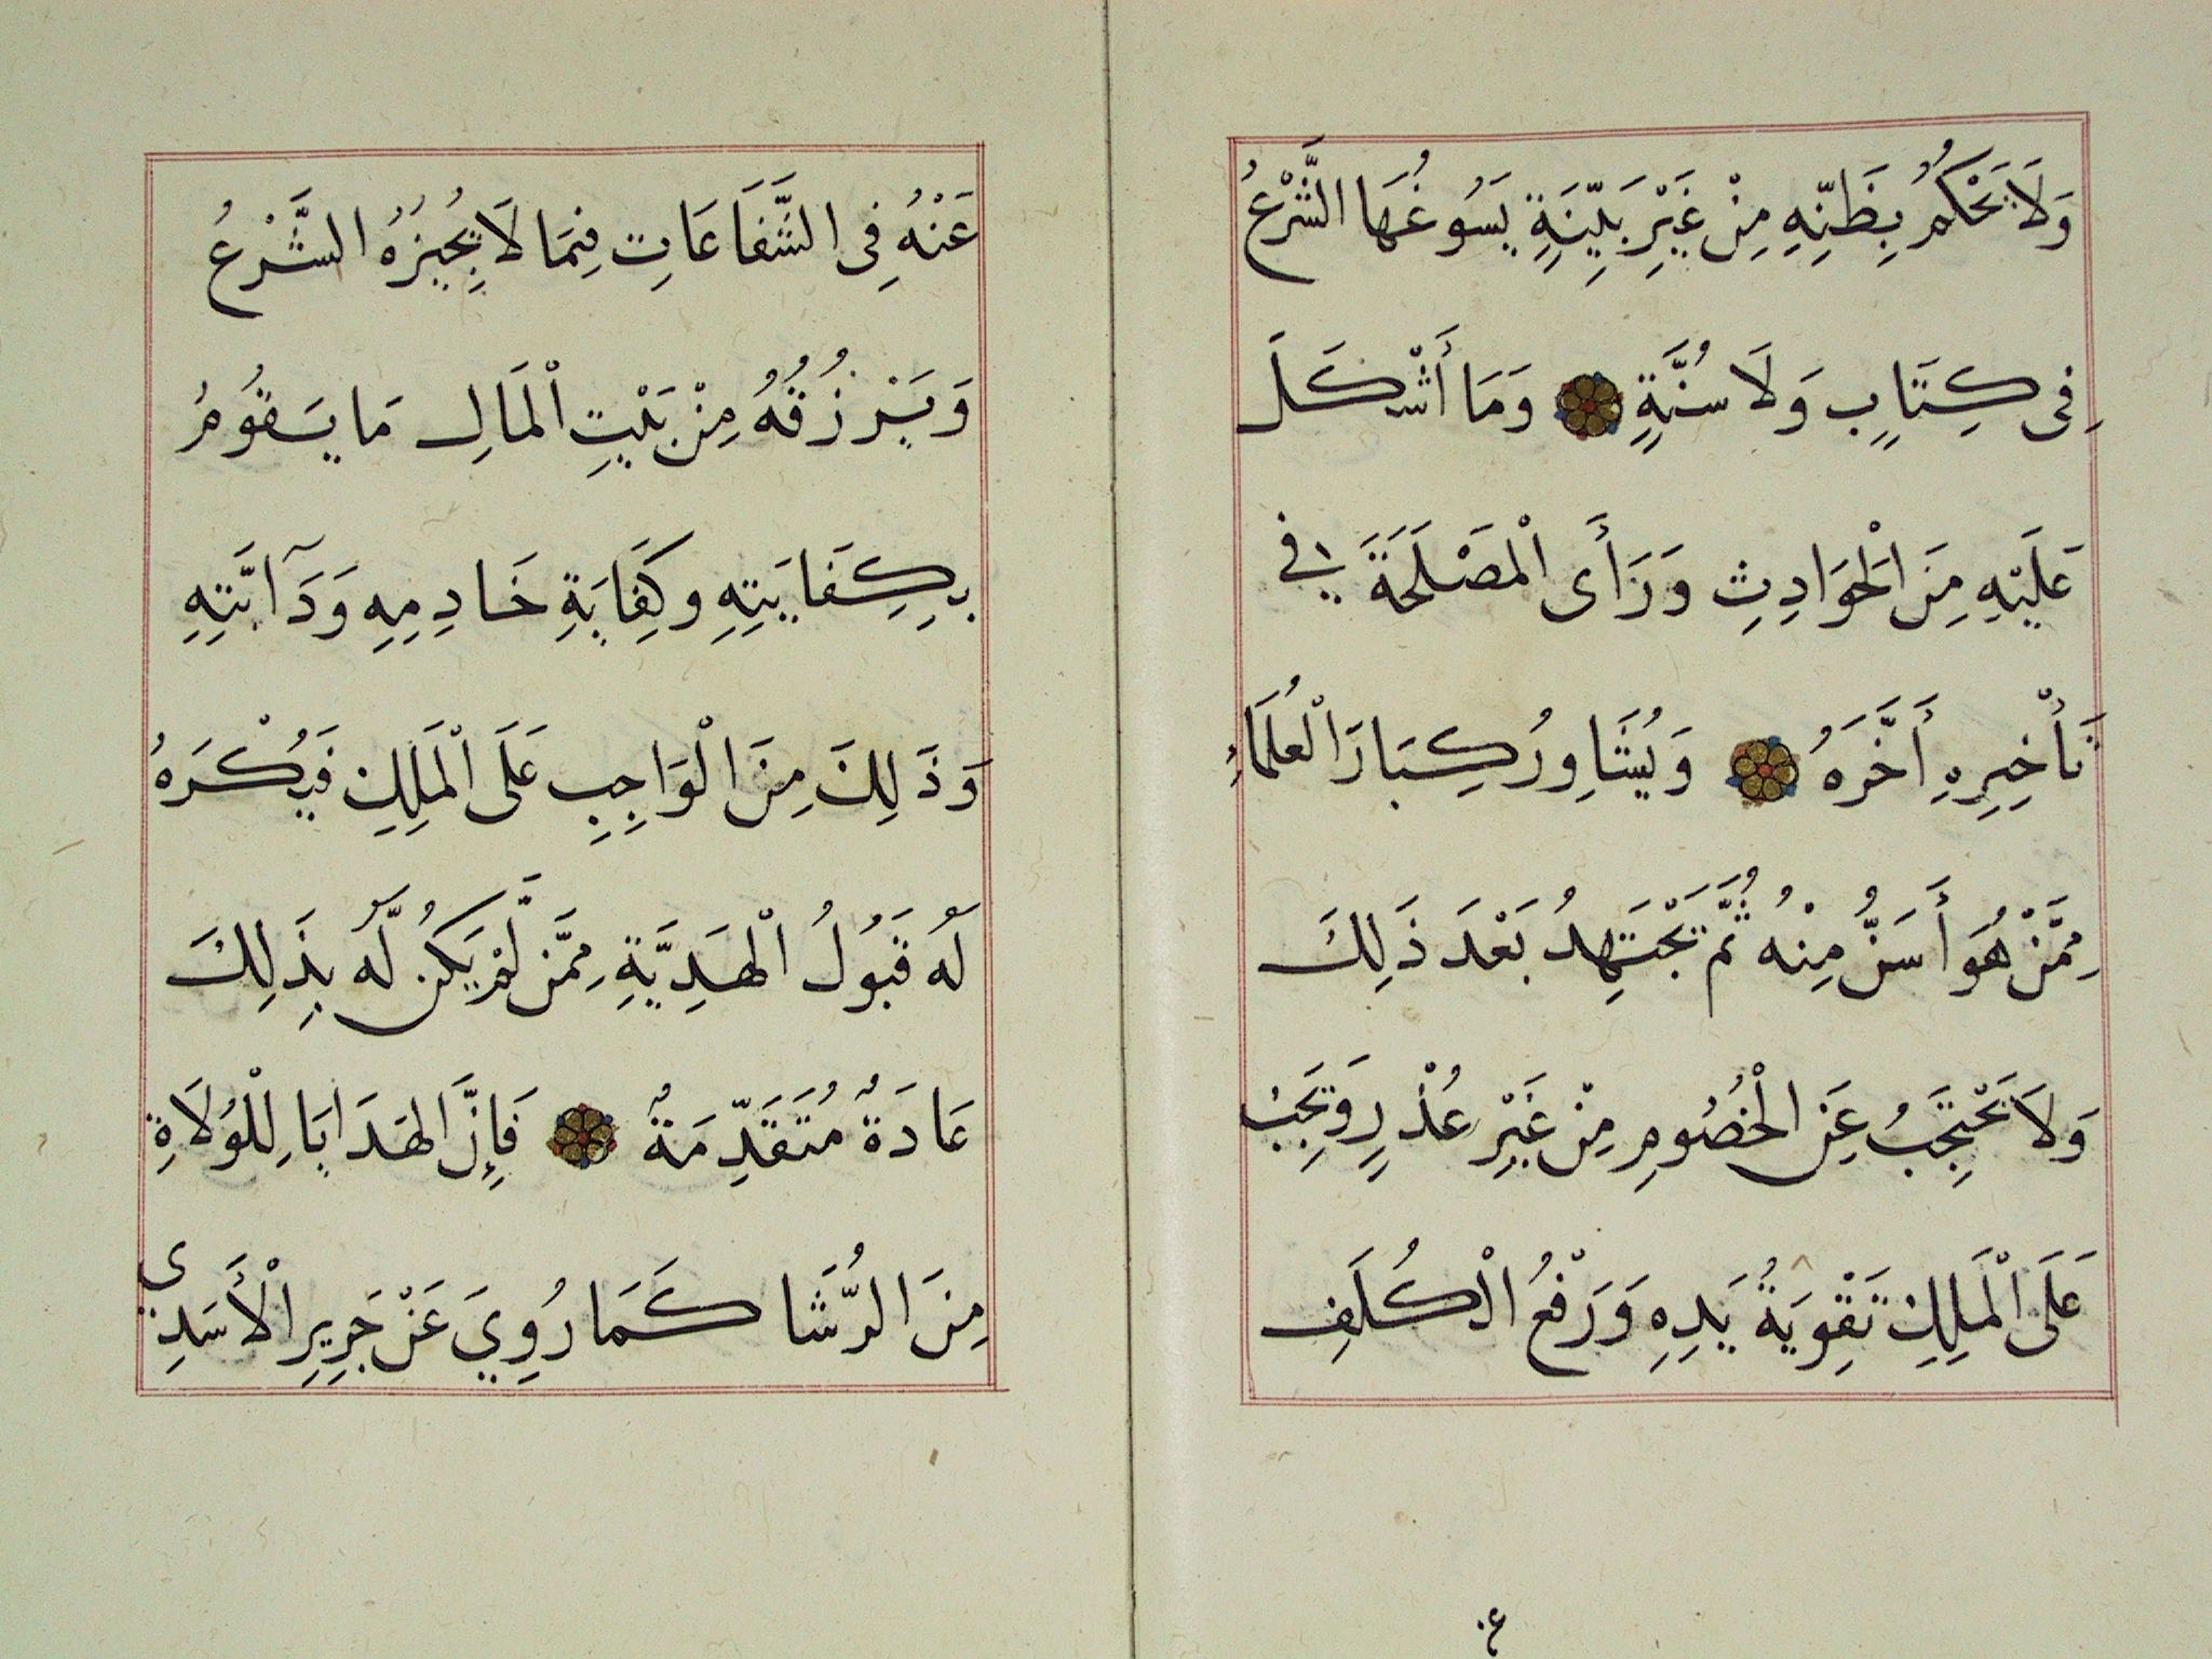 وَلَا يَحْكُمُ بِظَنِّهِ مِنْ غَيْرِ بَيِّنَةٍ يَسُوغُهَا الشَّرْعُ
فِى كِتَابٍ وَلَا سُنَّةٍ وَمَا أَشْكَلَ
عَلَيْهِ مِنَ الْحَوَادِثِ وَرَأَى الْمَصْلَحَةَ فِي
تَأْخِيرِهِ أَخَّرَهُ وَيُشَاوِرُ كِبَارَ الْعُلَمَاءِ
مِمَّنْ هُوَ أَسَنُّ مِنْهُ ثُمَّ يَجْتَهِدُ بَعْدَ ذَلِكَ
وَلَا يَحْتَجِبُ عَنِ الْخُصُومِ مِنْ غَيْرِ عُذْرٍ وَيَجِبُ
عَلَى الْمَلِكِ تَقْوِيَةُ يَدِهِ وَرَفْعُ الْكُلَفِ
٤٠
عَنْهُ فِى الشَّفَاعَاتِ فِيمَا لَا يُجِيزُهُ الشَّرْعُ
وَيَرْزُقُهُ مِنْ بَيْتِ الْمَالِ مَا يَقُومُ
بِكِفَايَتِهِ وكِفَايَةِ خَادِمِهِ وَدَآبَّتِهِ
وَذَلِكَ مِنَ الْوَاجِبِ عَلَى الْمَلِكِ فَيُكْرَهُ
لَهُ قَبُولُ الْهَدِيَّةِ مِمَّن لَّمْ يَكُن لَّهُ بِذَلِكَ
عَادَةٌ مُتَقَدِّمَةٌ فَإِنَّ الهَدَايَا لِلْوُلَاةِ
مِنَ الرُّشَا كَمَا رُوِيَ عَنْ جَرِيرِ الْأَسَدِي